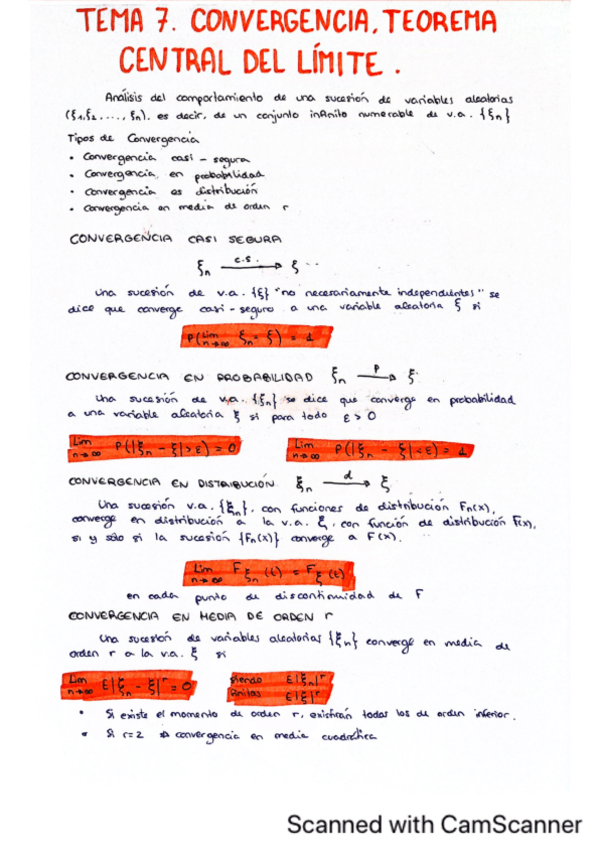 TEMA 7. CONVERGENCIA, TEOREMA
CENTRAL DEL LÍMITE.
Análisis del comportamiento de una sucesión de variables aleatorias
(ξ1, ξ2, ..., ξn), es decir, de un conjunto infinito numerable de v.a. {ξn}
Tipos de Convergencia
• Convergencia casi - segura
• Convergencia en probabilidad
• Convergencia en distribución
• Convergencia en media de orden r
CONVERGENCIA CASI SEGURA
ξn —c.s.→ ξ
Una sucesión de v.a. {ξ} "no necesariamente independientes" se
dice que converge casi-seguro a una variable aleatoria ξ si
P(lim n→∞ ξn = ξ) = 1
CONVERGENCIA EN PROBABILIDAD ξn —P→ ξ
Una sucesión de v.a. {ξn} se dice que converge en probabilidad
a una variable aleatoria ξ si para todo ε > 0
Lim n→∞ P(|ξn - ξ| > ε) = 0 Lim n→∞ P(|ξn - ξ| < ε) = 1
CONVERGENCIA EN DISTRIBUCIÓN ξn —d→ ξ
Una sucesión v.a. {ξn}, con funciones de distribución Fn(x),
converge en distribución a la v.a. ξ, con función de distribución F(x),
si y sólo si la sucesión {Fn(x)} converge a F(x).
Lim n→∞ Fξn (t) = Fξ (t)
en cada punto de discontinuidad de F
CONVERGENCIA EN MEDIA DE ORDEN r
Una sucesión de variables aleatorias {ξn} converge en media de
orden r a la v.a. ξ si
Lim n→∞ E|ξn - ξ|^r = 0 siendo E|ξn|^r
finitas E|ξ|^r
• Si existe el momento de orden r, existirán todos los de orden inferior.
• Si r=2 ⇒ convergencia en media cuadrática
Scanned with CamScanner